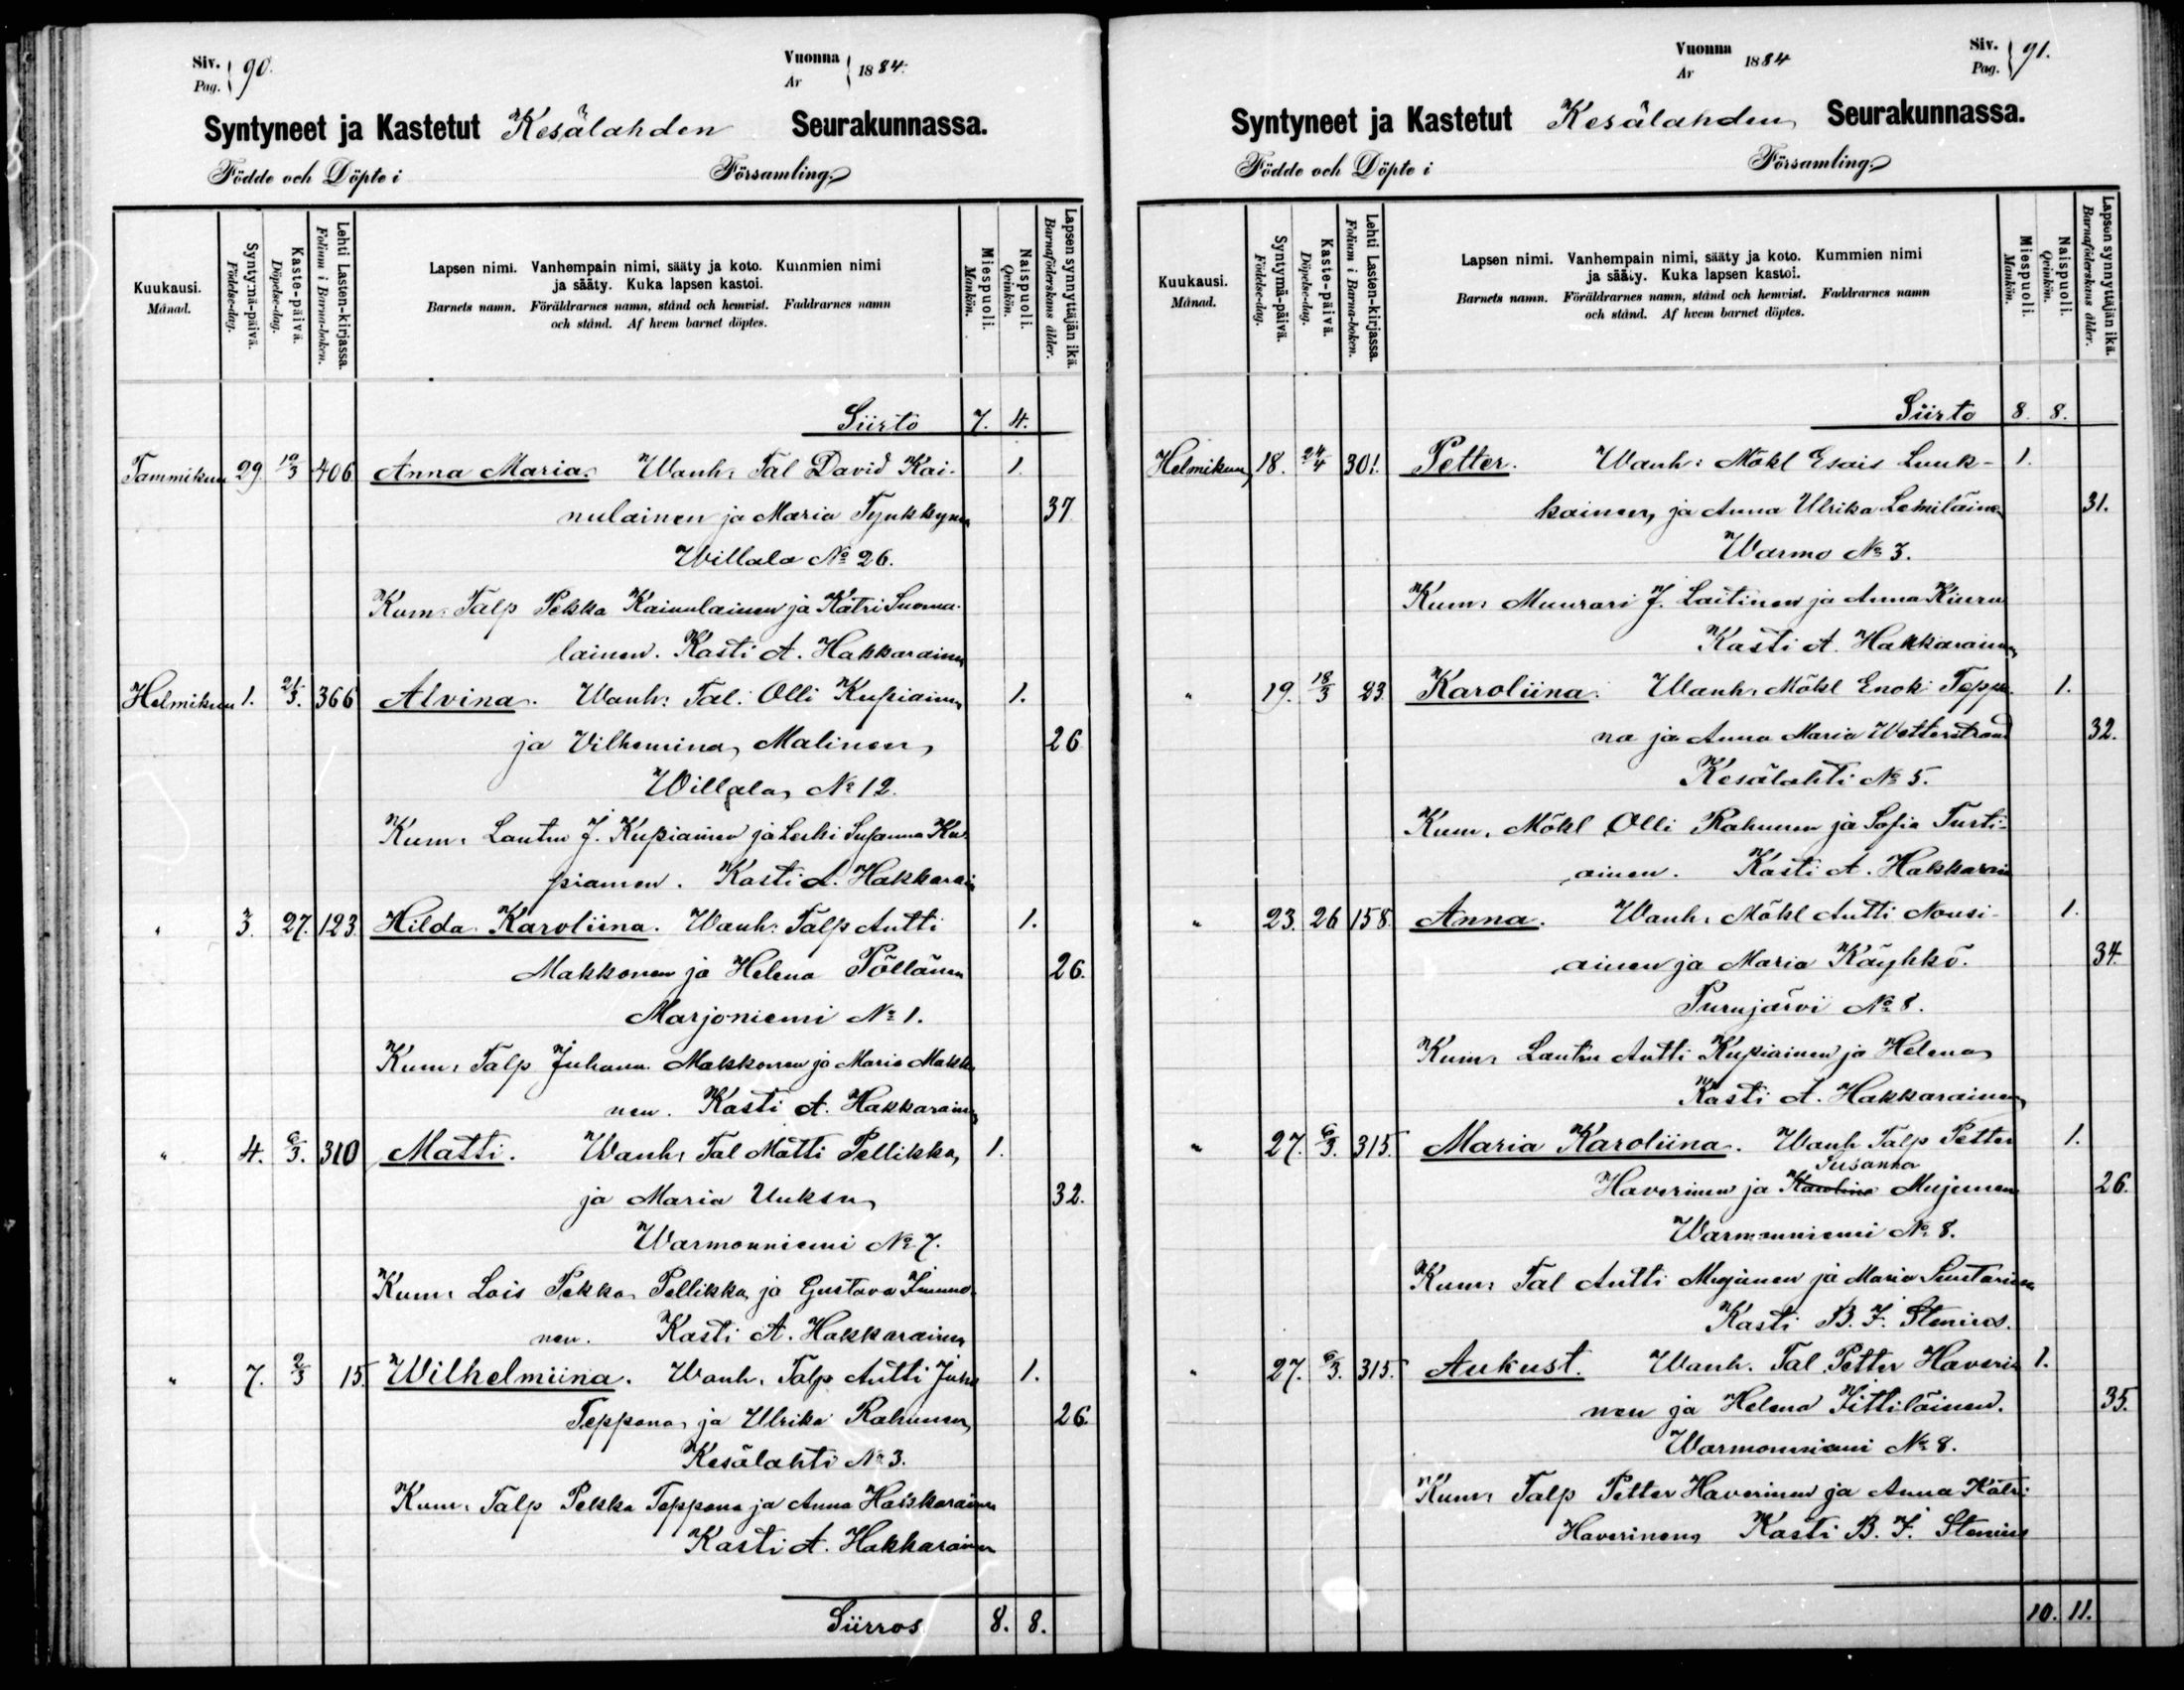 Siv. Pag. 90.
Vuonna Ar 1884.
Syntyneet ja Kastetut Kesälahden Seurakunnassa.
Födde och Döpte i Församling.
Kuukausi. Månad.
Syntymä-päivä. Födelse-dag.
Kaste-päivä. Döpelse-dag.
Lehti Lasten-kirjassa. Folium i Barna-boken.
Lapsen nimi. Vanhempain nimi, sääty ja koto. Kummien nimi
ja sääty. Kuka lapsen kastoi.
Barnets namn. Föräldrarnes namn, stånd och hemvist. Faddrarnes namn
och stånd. Af hvem barnet döptes.
Miespuoli. Mankön.
Naispuoli. Qvinkön.
Lapsen synnyttäjän ikä. Barnaföderskans ålder.
Siirto 7. 4.
Tammikuu 29. 10/3 406 Anna Maria. Wanh: Tal David Kai- 1.
nulainen ja Maria Tynkkynen 37
Willala No 26.
Kum: Talp Pekka Kainulainen ja Katri Suoma-
lainen. Kasti A. Hakkarainen
Helmikuu 1. 21/3. 366 Alvina. Wanh: Tal. Olli Kupiainen 1.
ja Vilhemina Malinen, 26
Willala, No 12.
Kum: Lautm J. Kupiainen ja Leski Susanna Ku-
piainen. Kasti A. Hakkarain
" 3. 27. 123 Hilda Karoliina. Wanh: Talp Antti 1.
Makkonen ja Helena Pöllänen 26.
Marjoniemi No 1.
Kum: Talp Juhana Makkonen ja Maria Makko
nen. Kasti A. Hakkarainen
" 4. 6/3. 310 Matti. Wanh: Tal Matti Pellikka, 1.
ja Maria Uuksu, 32.
Warmonniemi No 7.
Kum: Lois Pekka Pellikka, ja Gustava Immo-
nen. Kasti A. Hakkarainen
" 7. 2/3 15. Wilhelmiina. Wanh. Talp Antti Juha 1.
Teppana, ja Ulrika Rahunen, 26
Kesälahti No 3.
Kum: Talp Pekka Teppana ja Anna Hakkarainen
Kasti A. Hakkarainen
Siirros 8. 8.
Vuonna Ar 1884
Siv. Pag. 91.
Syntyneet ja Kastetut Kesälahden Seurakunnassa.
Födde och Döpte i Församling.
Kuukausi. Månad.
Syntymä-päivä. Födelse-dag.
Kaste-päivä. Döpelse-dag.
Lehti Lasten-kirjassa. Folium i Barna-boken.
Lapsen nimi. Vanhempain nimi, sääty ja koto. Kummien nimi
ja sääty. Kuka lapsen kastoi.
Barnets namn. Föräldrarnes namn, stånd och hemvist. Faddrarnes namn
och stånd. Af hvem barnet döptes.
Miespuoli. Mankön.
Naispuoli. Qvinkön.
Lapsen synnyttäjän ikä. Barnaföderskans ålder.
Siirto 8. 8.
Helmikuu, 18. 24/4 301. Petter. Wanh: Mökl Esais Luuk- 1.
kainen, ja Anna Ulrika Lemiläinen 31.
Warmo No 3.
Kum: Muurari J. Laitinen ja Anna Kiuru
Kasti A. Hakkarainen,
" 19. 18/3 23. Karoliina. Wanh: Mökl Enok Teppa- 1.
na ja Anna Maria Wetterstrand 32.
Kesälahti No 5.
Kum. Mökl Olli Rahunen ja Sofia Turti-
ainen. Kasti A. Hakkarain
" 23. 26 158. Anna. Wanh: Mökl Antti Nousi- 1.
ainen ja Maria Käyhkö. 34.
Purujärvi No 8.
Kum: Lautm Antti Kupiainen ja Helena
Kasti A. Hakkarainen,
" 27. 6/3. 315. Maria Karoliina. Wanh Talp Petter 1.
Susanna
Haverinen ja Karolina Mujunen 26.
Warmonniemi No 8.
Kum: Tal Antti Mujunen ja Maria Suutarinen
Kasti B. F. Stenius.
" 27. 6/3. 315. Aukust. Wanh. Tal Petter Haveri 1.
nen ja Helena Tittiläinen. 35.
Warmonniemi No 8.
Kum: Talp Petter Haverinen ja Anna Katri
Haverinen, Kasti B. F. Stenius
10. 11.